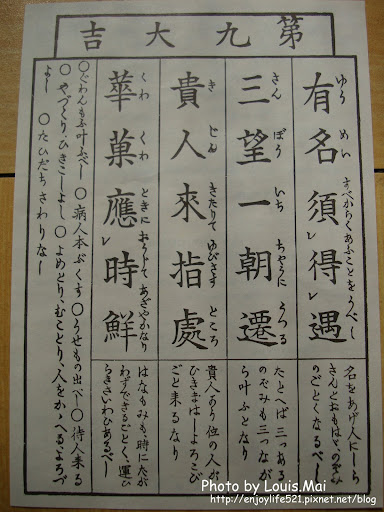 第九大吉
有名須得遇
ゆうめい すべからくあふことをうべし
名をあげ人にしら
れんとおもはゞ、のぞみ
のごとくなるべし
三望一朝遷
さんぼう いちちやうに うつる
たとへば三つある
のぞみも三つなが
ら叶ふとなり
貴人來指處
きじん きたりて ゆびさす ところ
貴人より位の人が
ひきまはしよろこび
ごと来るなり
華菓應時鮮
くわ くわ ときにおうじて あざやかなり
はなもみも時にたが
わずできるごとく、運ひ
らきさいわひあるべし
○ぐわんもふ叶ふべし ○病人本ぶくす ○うせもの出べし ○待人来る
○やづくり、ひきこしよし ○よめとり、むことり、人をかゝへるよろづ
よし ○たひだちさわりなし
Photo by Louis.Mai
http://enjoylife521.pixnet.net/blog